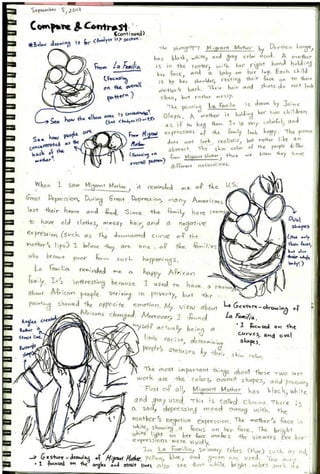 September 5, 2012
Compare & Contrast
(continued)
*Below drawing is for analysis section.
From La Familia
(focusing
on the overall
pattern)
See how the elbow area is
See how people are
concentrated on the
back of the
mother
From Migrant
Mother
(focusing on
overall pattern)
The photography Migrant Mother by Dorthea Lange,
has black, white, and gray color used. A mother
is in the center, with her right hand holding
her face, and a baby on her lap. Each child
is by her shoulder, resting their face on to their
mother's back. Their hair and shirts do not look
clean, but rather messy.
The painting La Familia is drawn by Jaime
Olaya. A mother is holding her two children,
as if to hug them. It is very colorful, and
expressions of the family look happy. The
does not look realistic, but rather like an
abstract. The skin color of the people differ
from Migrant Mother, thus we know they have
different nationalities.
When I saw Migrant Mother, it reminded me of the U.S.
Great Depression. During Great Depression, many Americans
lost their home and food. Since the family here seems
to have old clothes, messy hair, and a negative
expression (such as the downward curve of the
mother's lips) I believe they are one of the families
who became poor from such happenings.
La Familia reminded me a happy African
family. It's interesting because I used to have a
about African people starving in poverty, but the
painting showed the opposite emotion. My view about
Africans changed. Moreover, I found
myself actually being a
little racist, determining
people's statuses by their skin color.
Oval
shapes
(not only
their faces,
but also
their whole
body!)
La Gesture-drawing of
La Familia.
• I focused on the
curves, and oval
shapes.
Angles created
Rather
straight line.
The most important things about these two art
work are the colors, overall shapes, and
First of all, Migrant Mother has black, white
and gray used. This is called Chroma. There is
a sad, depressing mood along with the
mother's negative expression. The
white, showing the focus on her face. The bright
white light on her face makes the viewers see her
expressions more vividly.
In La Familia, primary colors (blue) such as red,
yellow, blue, and green are used. You may
also see that while bright colors such
→ Gesture-drawing of Migrant Mother
• I focused on the angles and straight lines